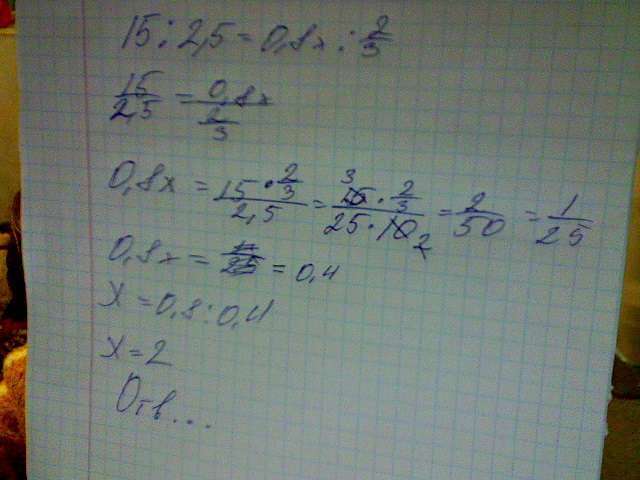 15 : 2,5 = 0,8x : 2/3
15/2,5 = 0,8x/(2/3)
0,8x = (15 · 2/3)/2,5 = (15 3 · 2/3)/(25 · 10 2) = 2/50 = 1/25
0,8x = = 0,4
x = 0,8 : 0,4
x = 2
Отв...